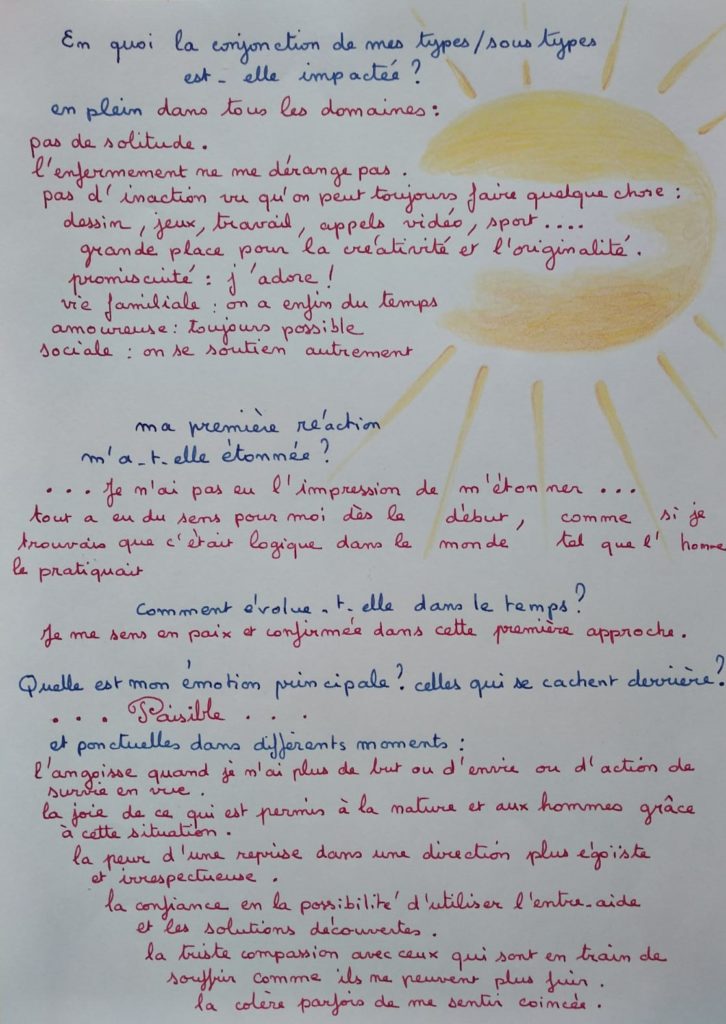 En quoi la conjonction de mes types/sous types
est-elle impactée ?
en plein dans tous les domaines :
pas de solitude.
l'enfermement ne me dérange pas.
pas d'inaction vu qu'on peut toujours faire quelque chose :
dessin, jeux, travail, appels vidéo, sport....
grande place pour la créativité et l'originalité.
promiscuité : j'adore !
vie familiale : on a enfin du temps
amoureuse : toujours possible
sociale : on se soutien autrement
ma première réaction
m'a-t-elle étonnée ?
... Je n'ai pas eu l'impression de m'étonner ...
tout a eu du sens pour moi dès le début, comme si je
trouvais que c'était logique dans le monde tel que l'homme
le pratiquait
Comment évolue-t-elle dans le temps ?
Je me sens en paix et confirmée dans cette première approche.
Quelle est mon émotion principale ? celles qui se cachent derrière ?
... Paisible ...
et ponctuelles dans différents moments :
l'angoisse quand je n'ai plus de but ou d'envie ou d'action de
survie en vue.
la joie de ce qui est permis à la nature et aux hommes grâce
à cette situation.
la peur d'une reprise dans une direction plus égoïste
et irrespectueuse.
la confiance en la possibilité d'utiliser l'entre-aide
et les solutions découvertes.
la triste compassion avec ceux qui sont en train de
souffrir comme ils ne peuvent plus fuir.
la colère parfois de me sentir coincée.